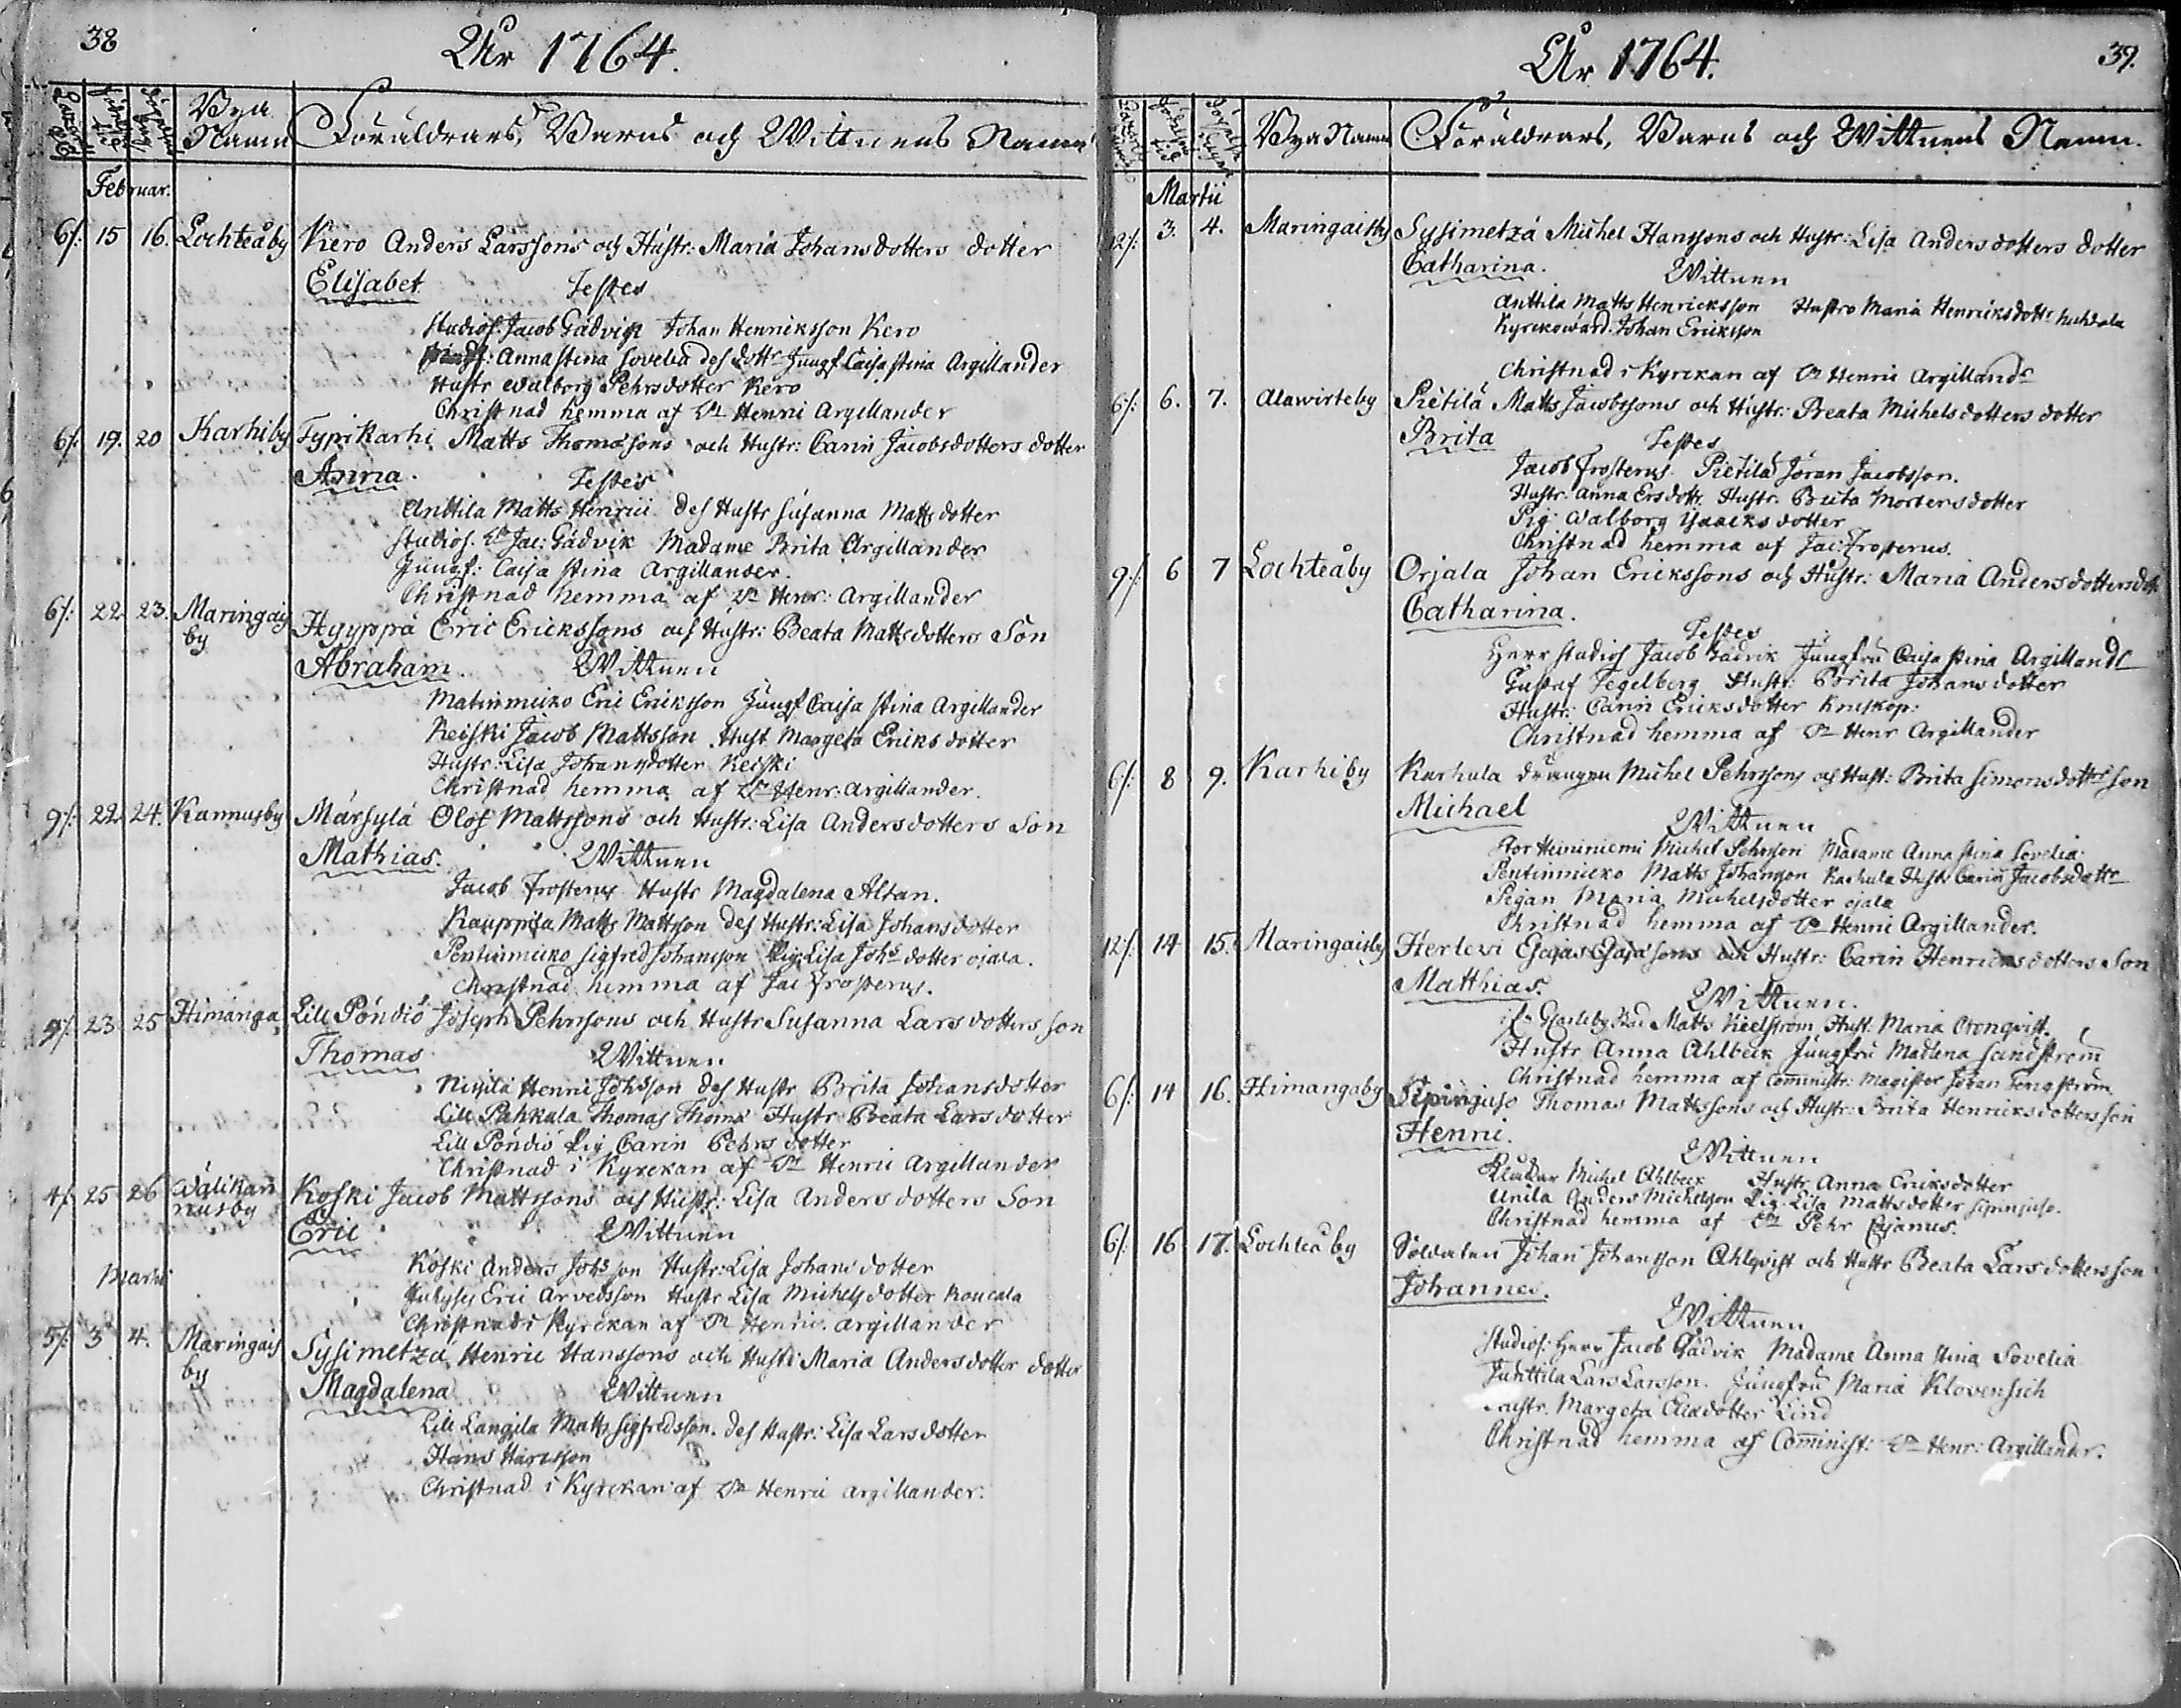 38
År 1764.
Bya Namn Föräldrars, Barns och Wittnens Namn
Februar.
6/. 15 16. Lochteåby Kero Anders Larssons och Hustr: Maria Johansdotters dotter
Elisabet Testes
Studios. Jacob Gadvik Johan Henriksson Kero
Anna Stina Sovelia des dottr Jungf Caisa Stina Argillander
Hustr Walborg Pehrsdotter Kero
Christnad hemma af Dn Henric Argillander
6/. 19. 20 Karhiby Typi Karhi Matts Thomæsons och Hustr: Carin Jacobsdotters dotter
Anna. Testes
Anttila Matts Henrici des Hustr Susanna Mattsdotter
Studios. Dn Jac: Gadvik Madame Brita Argillander
Jungf: Caisa Stina Argillander.
Christnad hemma af Dn Henr: Argillander
6/. 22 23. Maringais
by Hyyppä Eric Erickssons och Hustr: Beata Mattsdotters Son
Abraham Wittnen
Matinmicko Eric Eriksson Jungf Caisa Stina Argillander
Keiski Jacob Mattsson Hust Margeta Eriks dotter
Hustr: Lisa Johansdotter Keiski
Christnad hemma af Dn Henr: Argillander.
9/. 22 24. Kannusby Märsylä Olof Mattssons och Hustr: Lisa Andersdotters Son
Mathias. Wittnen
Jacob Frosterus Hustr Magdalena Altan.
Kauppila Matts Mattsson des Hustr: Lisa Johansdotter
Pentinmicko Sigfred Johansson Pig: Lisa Johs dotter ojala.
Christnad hemma af Jac Frosterus.
9/. 23 25 Himanga Lill Pöndiö Joseph Pehrssons och Hustr Susanna Larsdotters son
Thomas Wittnen
Nisula Henric Johsson des Hustr Brita Johansdotter
Lill Pahkala Thomas Thomæ Hustr Beata Larsdotter
Lill Pöndiö Pig Carin Pehrsdotter
Christnad i Kyrckan af Dn Henric Argillander
4/. 25 26 Wälikan
nusby Koski Jacob Mattssons och Hustr: Lisa Andersdotters Son
Eric Wittnen
Koski Anders Johsson Hustr: Lisa Johansdotter
Eric Arvedsson Hustr Lisa Michelsdotter
Christnad i Kyrckan af Dn Henric. Argillander
Martii
5/. 3 4. Maringais
by Sysimetzä Henric Hanssons och Hustr: Maria Andersdotter dotter
Magdalena Wittnen
Lill Langila Matts Sigfredsson. des Hustr: Lisa Larsdotter
Hans Hansson
Christnad i Kyrckan af Dn Henric Argillander.
39.
År 1764.
Bya Namn Föräldrars, Barns och Wittnens Namn.
Martii
12/. 3. 4. Maringaisby Sysimetzä Michel Hanssons och Hustr: Lisa Andersdotters dotter
Catharina. Wittnen
Anttila Matts Henricksson Hustro Maria Henriksdottr
Kyrckowärd. Johan Ericksson
Christnad i Kyrckan af Dn Henric Argilland
6/. 6. 7. Alawirteby Pietilä Matts Jacobssons och Hustr: Beata Michelsdotters dotter
Brita Testes
Jacob Frosterus Pietilä Jöran Jacobsson.
Hustr. Anna Ersdottr Hustr. Brita Mortensdotter
Pig. Walborg Isaacksdotter
Christnad hemma af Jac: Frosterus.
9/. 6 7 Lochteåby Orjala Johan Erickssons och Hustr: Maria Andersdotters dottr
Catharina.
Testes
Herr Studios Jacob Gadvik Jungfru Caisa Stina Argilland
Gustaf Tegelberg Hustr: Brita Johansdotter
Hustr: Carin Ericksdotter
Christnad hemma af Dn Henr Argillander
6/. 8 9. Karhiby Karhula drängen Michel Pehrssons och Hust: Brita Simonsdottrs Son
Michael Wittnen
Stor Heininiemi Michel Pehrsson Madame Anna Stina Sovelia
Pentinmicko Matts Johansson Karhula Hust Carin Jacobsdottr
Pigan Maria Michelsdotter ojala
Christnad hemma af Dn Henric Argillander.
12/. 14 15. Maringaisby Herlevi Esaias Esaiæsons och Hustr: Carin Henricksdotters Son
Matthias. Wittnen.
Matts Kielström Hust. Maria Cronqvist.
Hustr Anna Ahlbeck Jungfru Madlena Sandström
Christnad hemma af Comministr: Magister Johan Tengström
6/. 14 16. Himangaby Sipinjuso Thomas Matssons och Hustr: Brita Henricksdotters son
Henric.
Wittnen
Klåckar Michel Ahlbeck Hustr Anna Ericksdotter
Unila Anders Michelsson Pig: Lisa Mattsdotter Sipinjuso.
Christnad hemma af Dn Pehr Cajanus.
6/. 16 17. Lochteåby Soldaten Johan Johansson Ahlqvist och Hustr Beata Larsdotters son
Johannes.
Wittnen
Studios: Herr Jacob Gadvik Madame Anna Stina Sovelia
Junttila Lars Larsson. Jungfru Maria Klovensich
Hustr. Margeta Lind
Christnad hemma af Comminist: Dn Henr: Argillander.